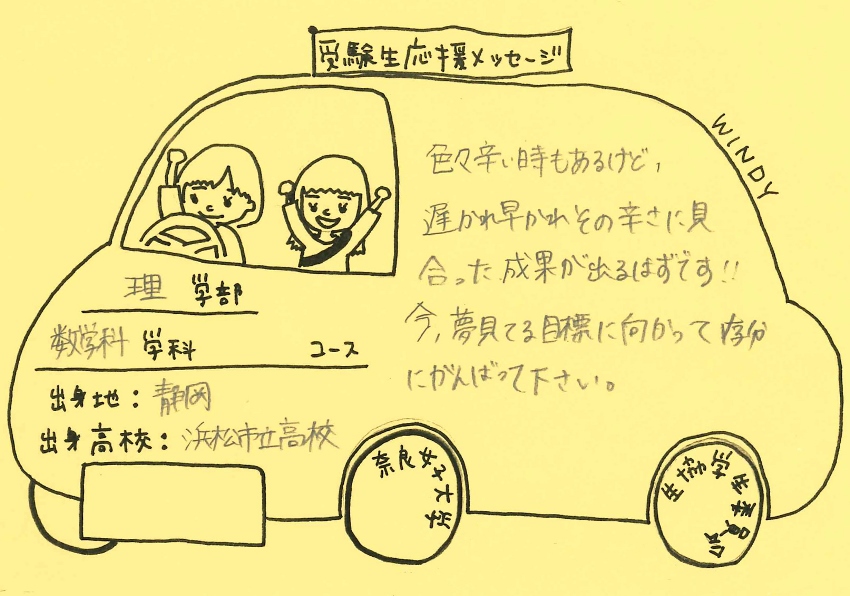 受験生応援メッセージ
WINDY
色々辛い時もあるけど、
遅かれ早かれその辛さに見
合った成果が出るはずです!!
今、夢見てる目標に向かって存分
にがんばって下さい。
理 学部
数学科 学科 コース
出身地：静岡
出身高校：浜松市立高校
奈良女子大学
生協学生委員会